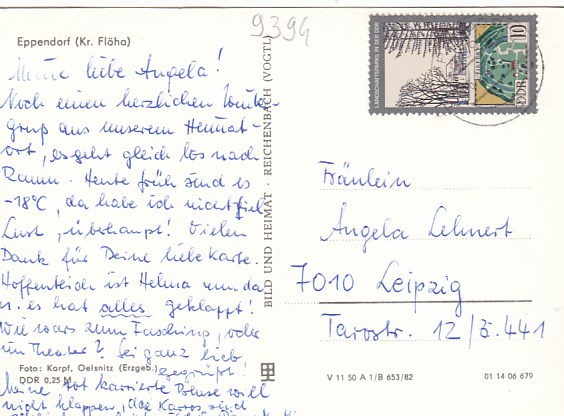 9394
Eppendorf (Kr. Flöha)
Meine liebe Angela!
Noch einen herzlichen Winter-
gruß aus unserem Heimat-
ort, es geht gleich los nach
Raum. Heute früh sind es
-18°C, da habe ich nicht viel
Lust, überhaupt! Vielen
Dank für Deine liebe Karte.
Hoffentlich ist Helma nun da
u. es hat alles geklappt!
Wie wars zum Fasching, oder
im Theater? Sei ganz lieb
gegrüßt!
Foto: Karpf, Oelsnitz (Erzgeb.)
DDR 0,25 M
Meine rot karrierte Bluse will
nicht klappen, das Karros sind
BILD UND HEIMAT · REICHENBACH (VOGTL)
10
DDR
Fräulein
Angela Lehnert
7010 Leipzig
Tarostr. 12/Z.441
V 11 50 A 1/B 653/82
01 14 06 679